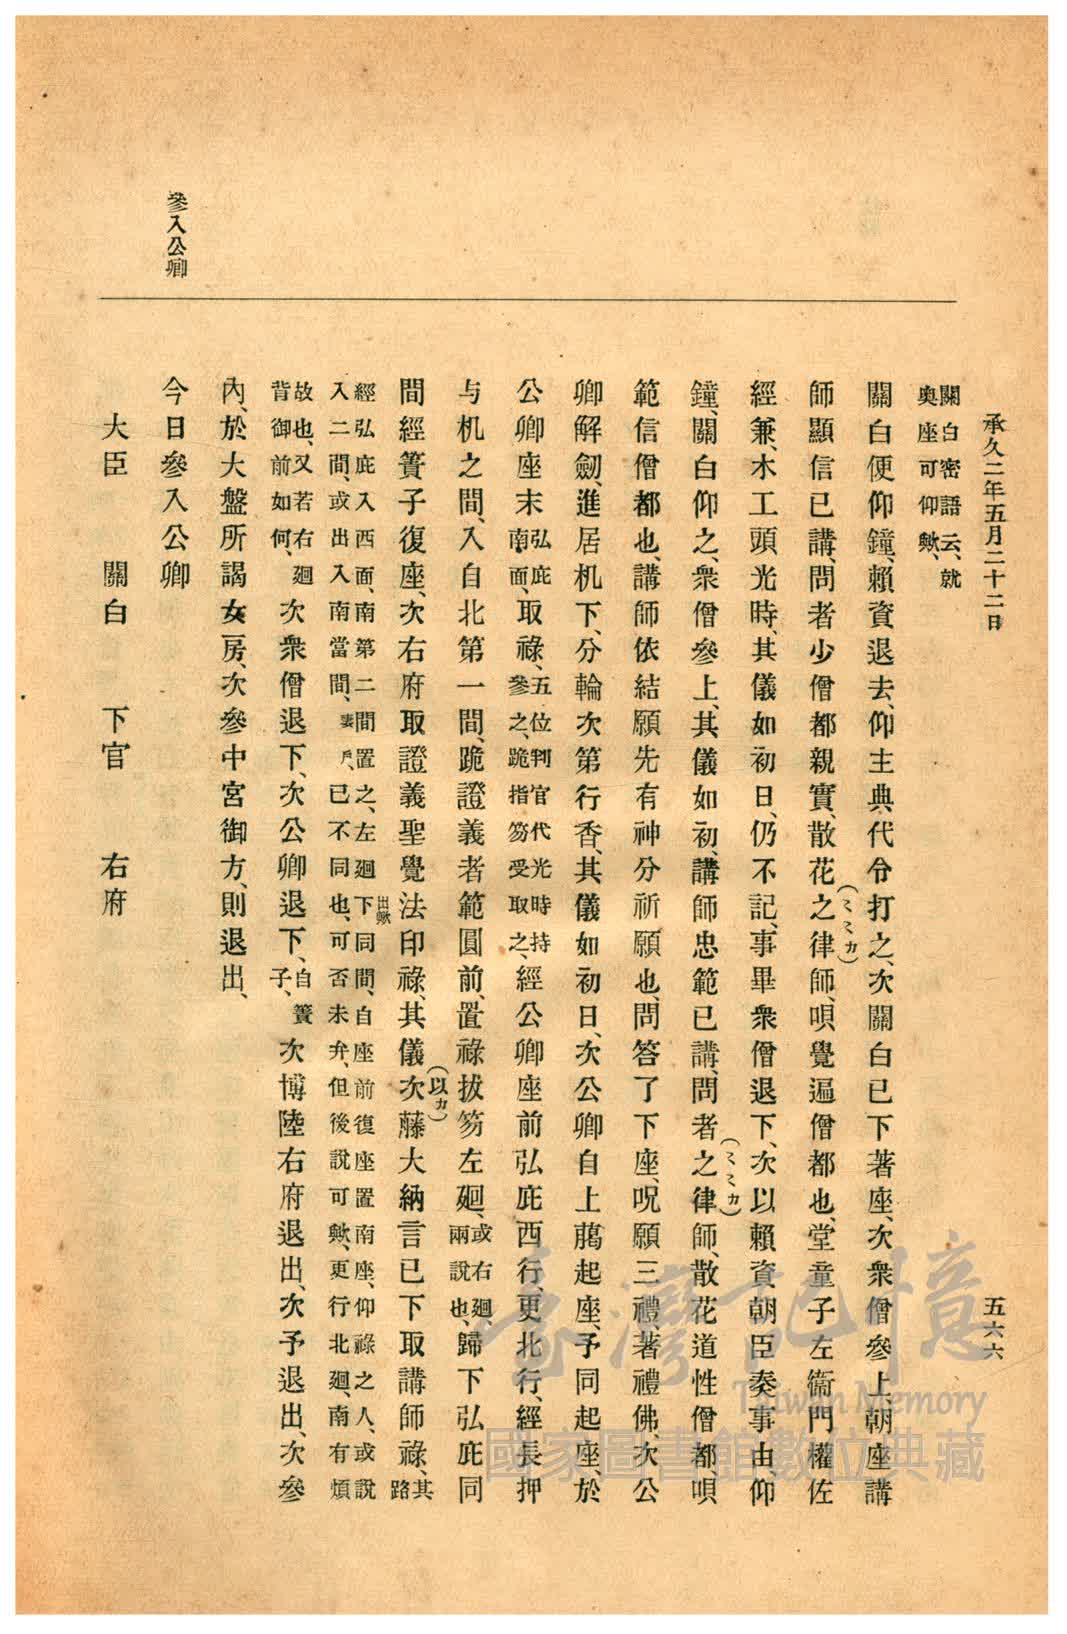 承久二年五月二十二日
五六六
關白密語云、就
奥座可仰歟、
關白便仰鐘、賴資退去、仰主典代令打之、次關白已下著座、次衆僧參上朝座講
師顯信已講、問者少僧都親實、散花之律師、唄覺遍僧都也、堂童子左衞門權佐
(ミミカ)
經兼、木工頭光時、其儀如初日、仍不記、事畢衆僧退下、次以賴資朝臣奏事由仰
鐘、關白仰之、衆僧參上、其儀如初、講師忠範已講、問者之律師、散花道性僧都唄
(ミミカ)
範信僧都也、講師依結願先有神分祈願也、問答了下座、呪願三禮、著禮佛、次公
卿解劔、進居机下、分輪次第行香、其儀如初日、次公卿自上﨟起座、予同起座、於
公卿座末弘庇南面、取祿、五位判官代光時持參之、跪指笏受取之、經公卿座前弘庇西行、更北行、經長押
与机之間、入自北第一間、跪證義者範圓前、置祿拔笏左廻、或右廻、兩說也、歸下弘庇同
間經簀子復座、次右府取證義聖覺法印祿、其儀次藤大納言已下取講師祿、其路
(以カ)
經弘庇入西面、南第二間置之、左廻下同間、自座前復座置南座、仰祿之人、或說
出歟
入二間、或出入南當間、妻戶、已不同也、可否未弁、但後說可歟、更行北廻、南有煩
故也、又若右廻
背御前如何、
次衆僧退下、次公卿退下、自簀子、次博陸右府退出、次予退出、次參
內、於大盤所謁女房、次參中宮御方、則退出、
參入公卿
今日參入公卿
大臣　關白　下官　右府
臺灣記憶
Taiwan Memory
國家圖書館數位典藏